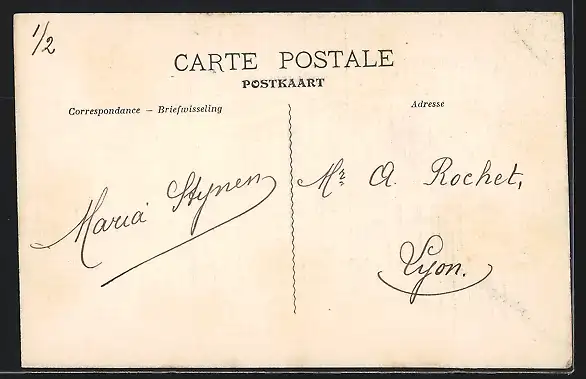 1/2
CARTE POSTALE
POSTKAART
Correspondance – Briefwisseling
Adresse
Maria Stynen
Mr. A. Rochet,
Lyon.